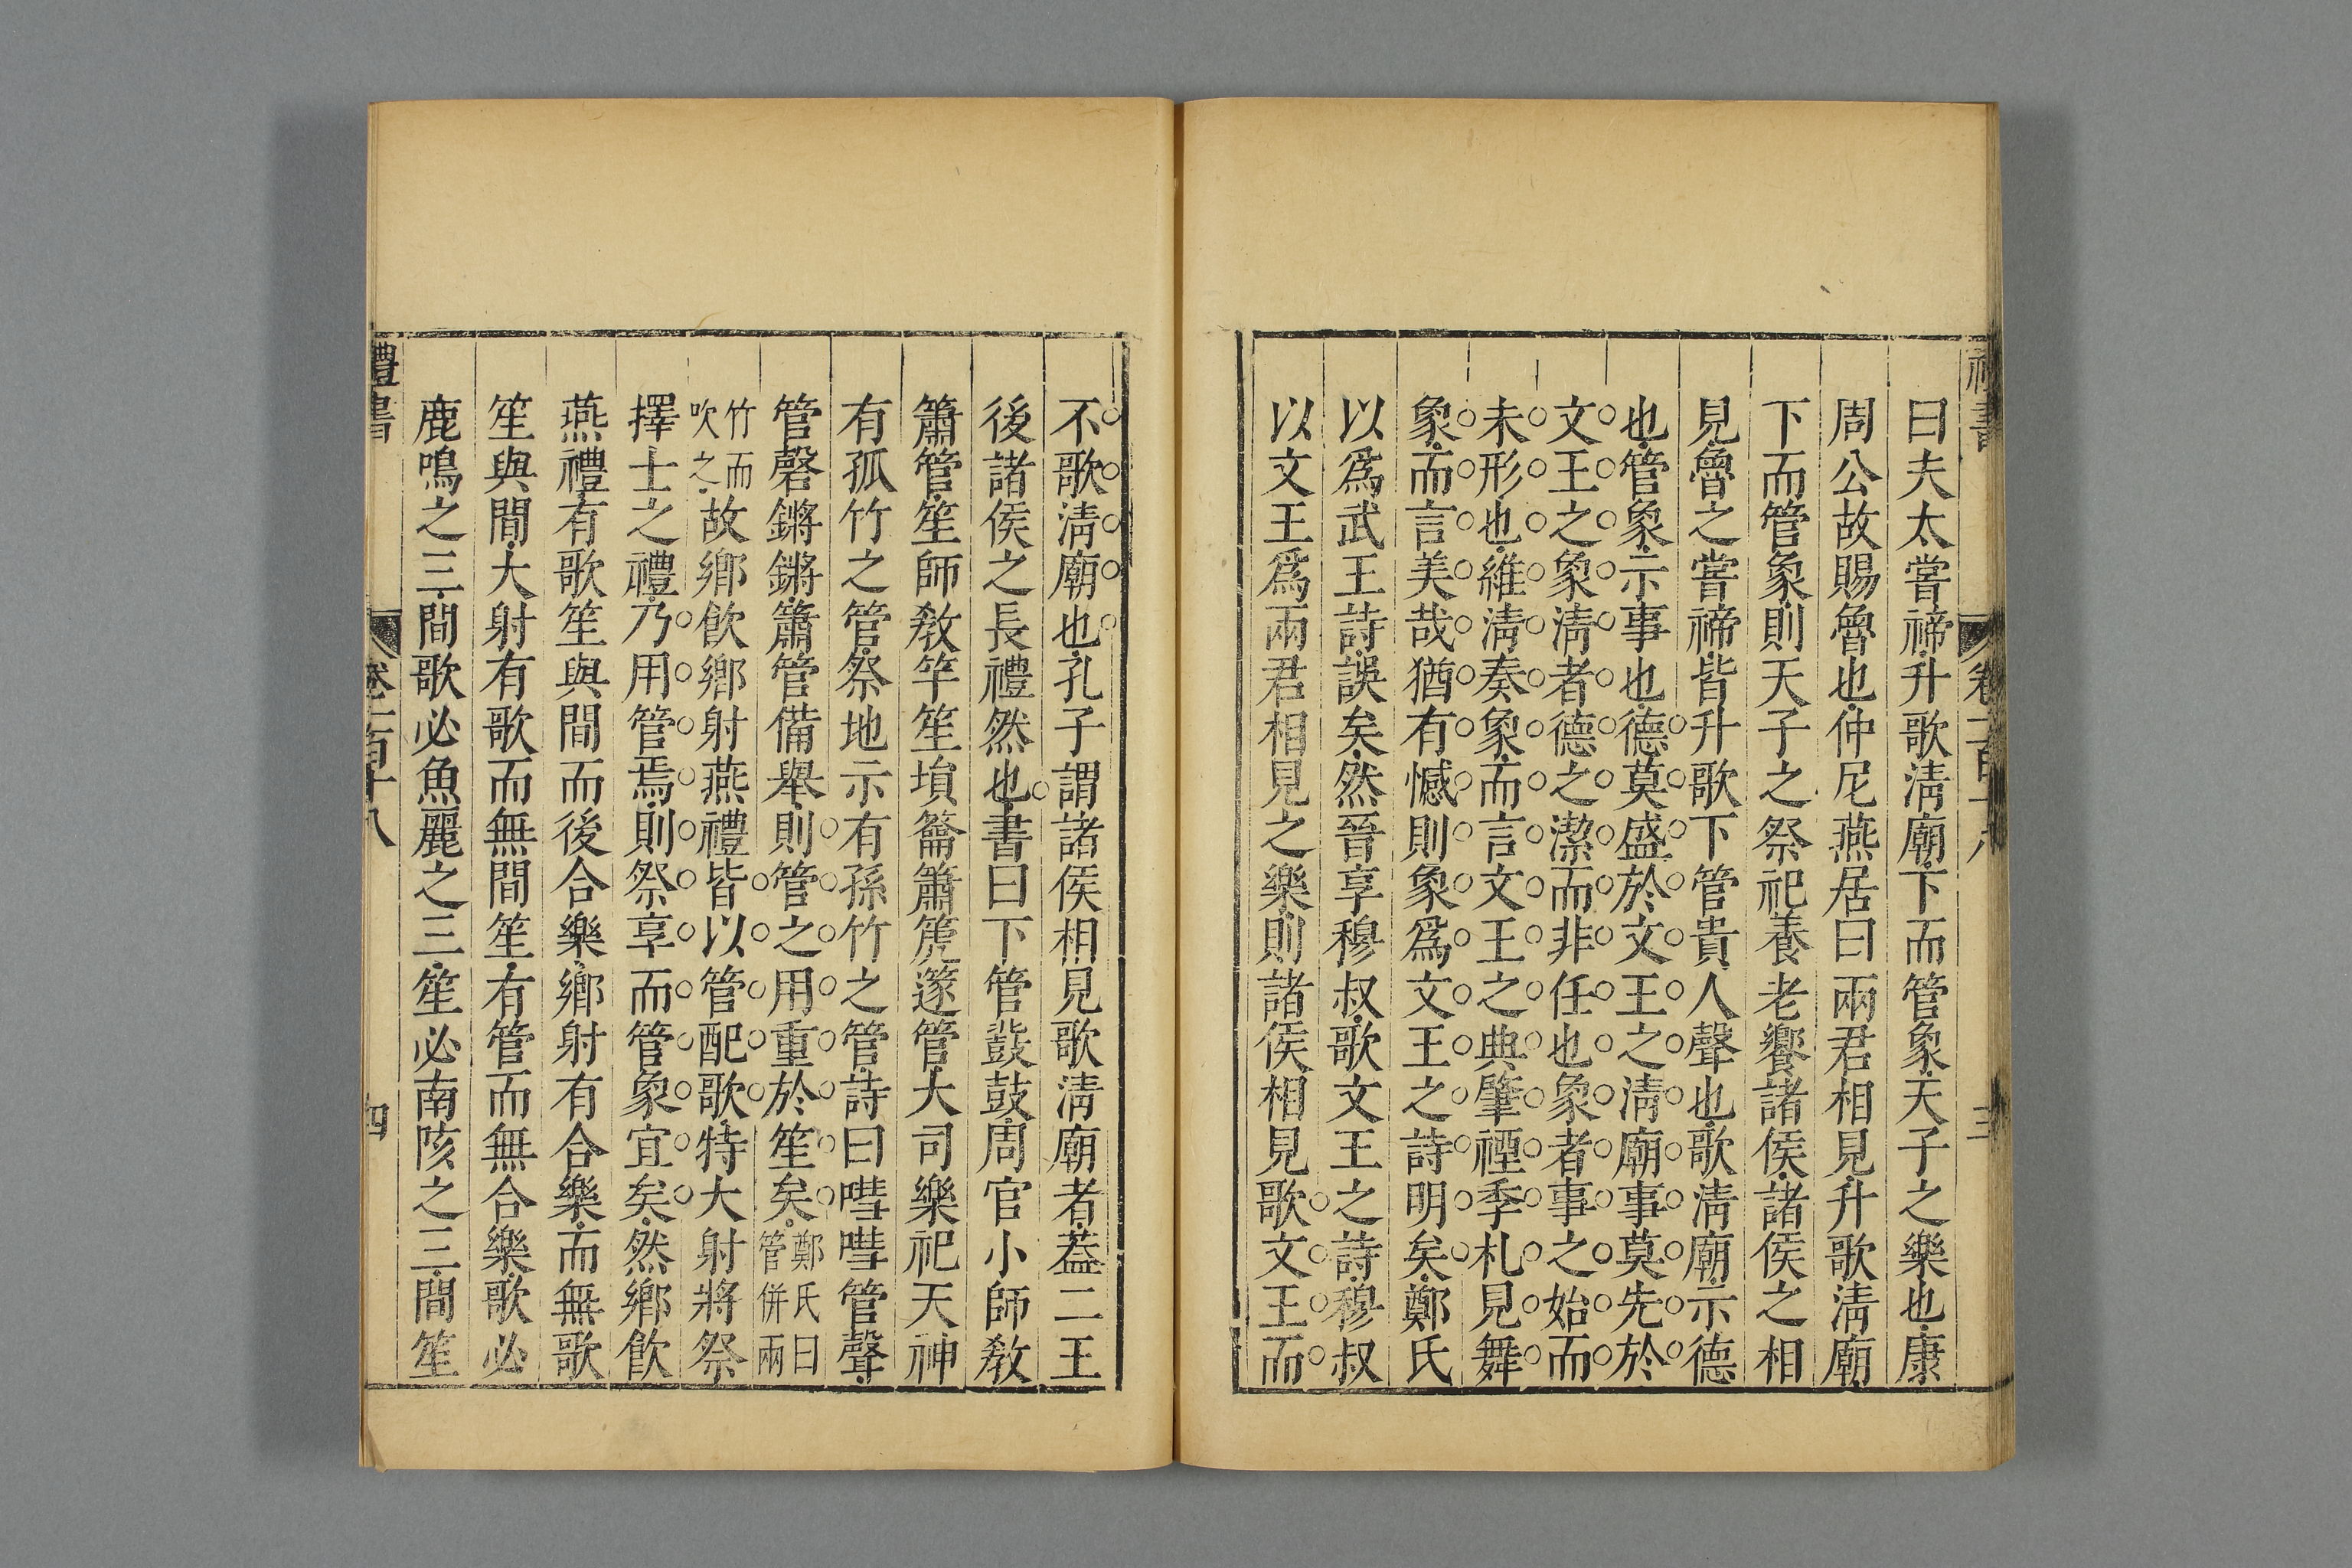 曰夫太嘗禘升歌淸廟下而管象天子之樂也康
周公故賜魯也仲尼燕居曰兩君相見升歌淸廟
下而管象則天子之祭祀養老饗諸侯諸侯之相
見魯之嘗禘皆升歌下管貴人聲也歌淸廟示德
也管象示事也德莫盛於文王之淸廟事莫先於
文王之象淸者德之潔而非任也象者事之始而
未形也維淸奏象而言文王之典肇禋季札見舞
象而言美哉猶有憾則象爲文王之詩明矣鄭氏
以爲武王詩誤矣然晉享穆叔歌文王之詩穆叔
以文王爲兩君相見之樂則諸侯相見歌文王而
不歌淸廟也孔子謂諸侯相見歌淸廟者蓋二王
後諸侯之長禮然也書曰下管鼗鼓周官小師敎
簫管笙師敎竽笙塤籥簫篪篴管大司樂祀天神
有孤竹之管祭地示有孫竹之管詩曰嘒嘒管聲
管磬鏘鏘簫管備舉則管之用重於笙矣鄭氏曰管併兩
竹而吹之故鄉飮鄉射燕禮皆以管配歌特大射將祭
擇士之禮乃用管焉則祭享而管象宜矣然鄉飮
燕禮有歌笙與間而後合樂鄉射有合樂而無歌
笙與間大射有歌而無間笙有管而無合樂歌必
鹿鳴之三間歌必魚麗之三笙必南陔之三間笙
禮書
卷一百十八
四